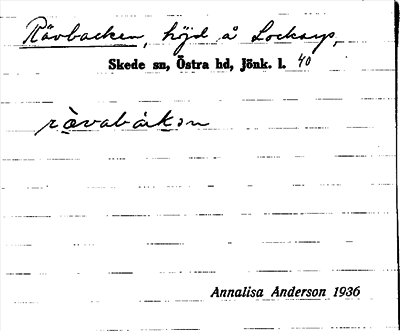 Rävbacken, höjd å Lockarp,
Skede sn, Östra hd, Jönk. l. 40
rävabakən
Annalisa Anderson 1936